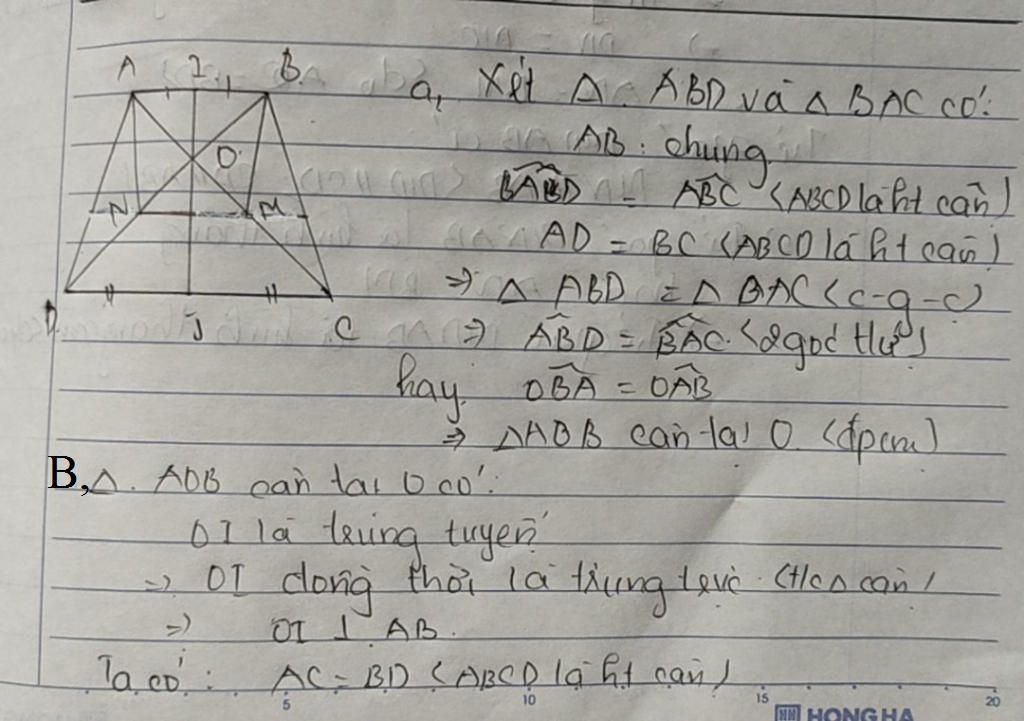 A I B
O
N M
D J C
a, Xét Δ ABD và Δ BAC có:
AB: chung
BAD = ABC (ABCD là ht cân)
AD = BC (ABCD là ht cân)
=> Δ ABD = Δ BAC (c-g-c)
=> ABD = BAC (2 góc t/ư)
hay OBA = OAB
=> ΔAOB cân tại O (đpcm)
B, Δ AOB cân tại O có:
OI là trung tuyến
=> OI đồng thời là trung trực (t/c Δ cân)
=> OI ⊥ AB.
Ta có: AC = BD (ABCD là ht cân)
5 10 15 20
HH HONG HA